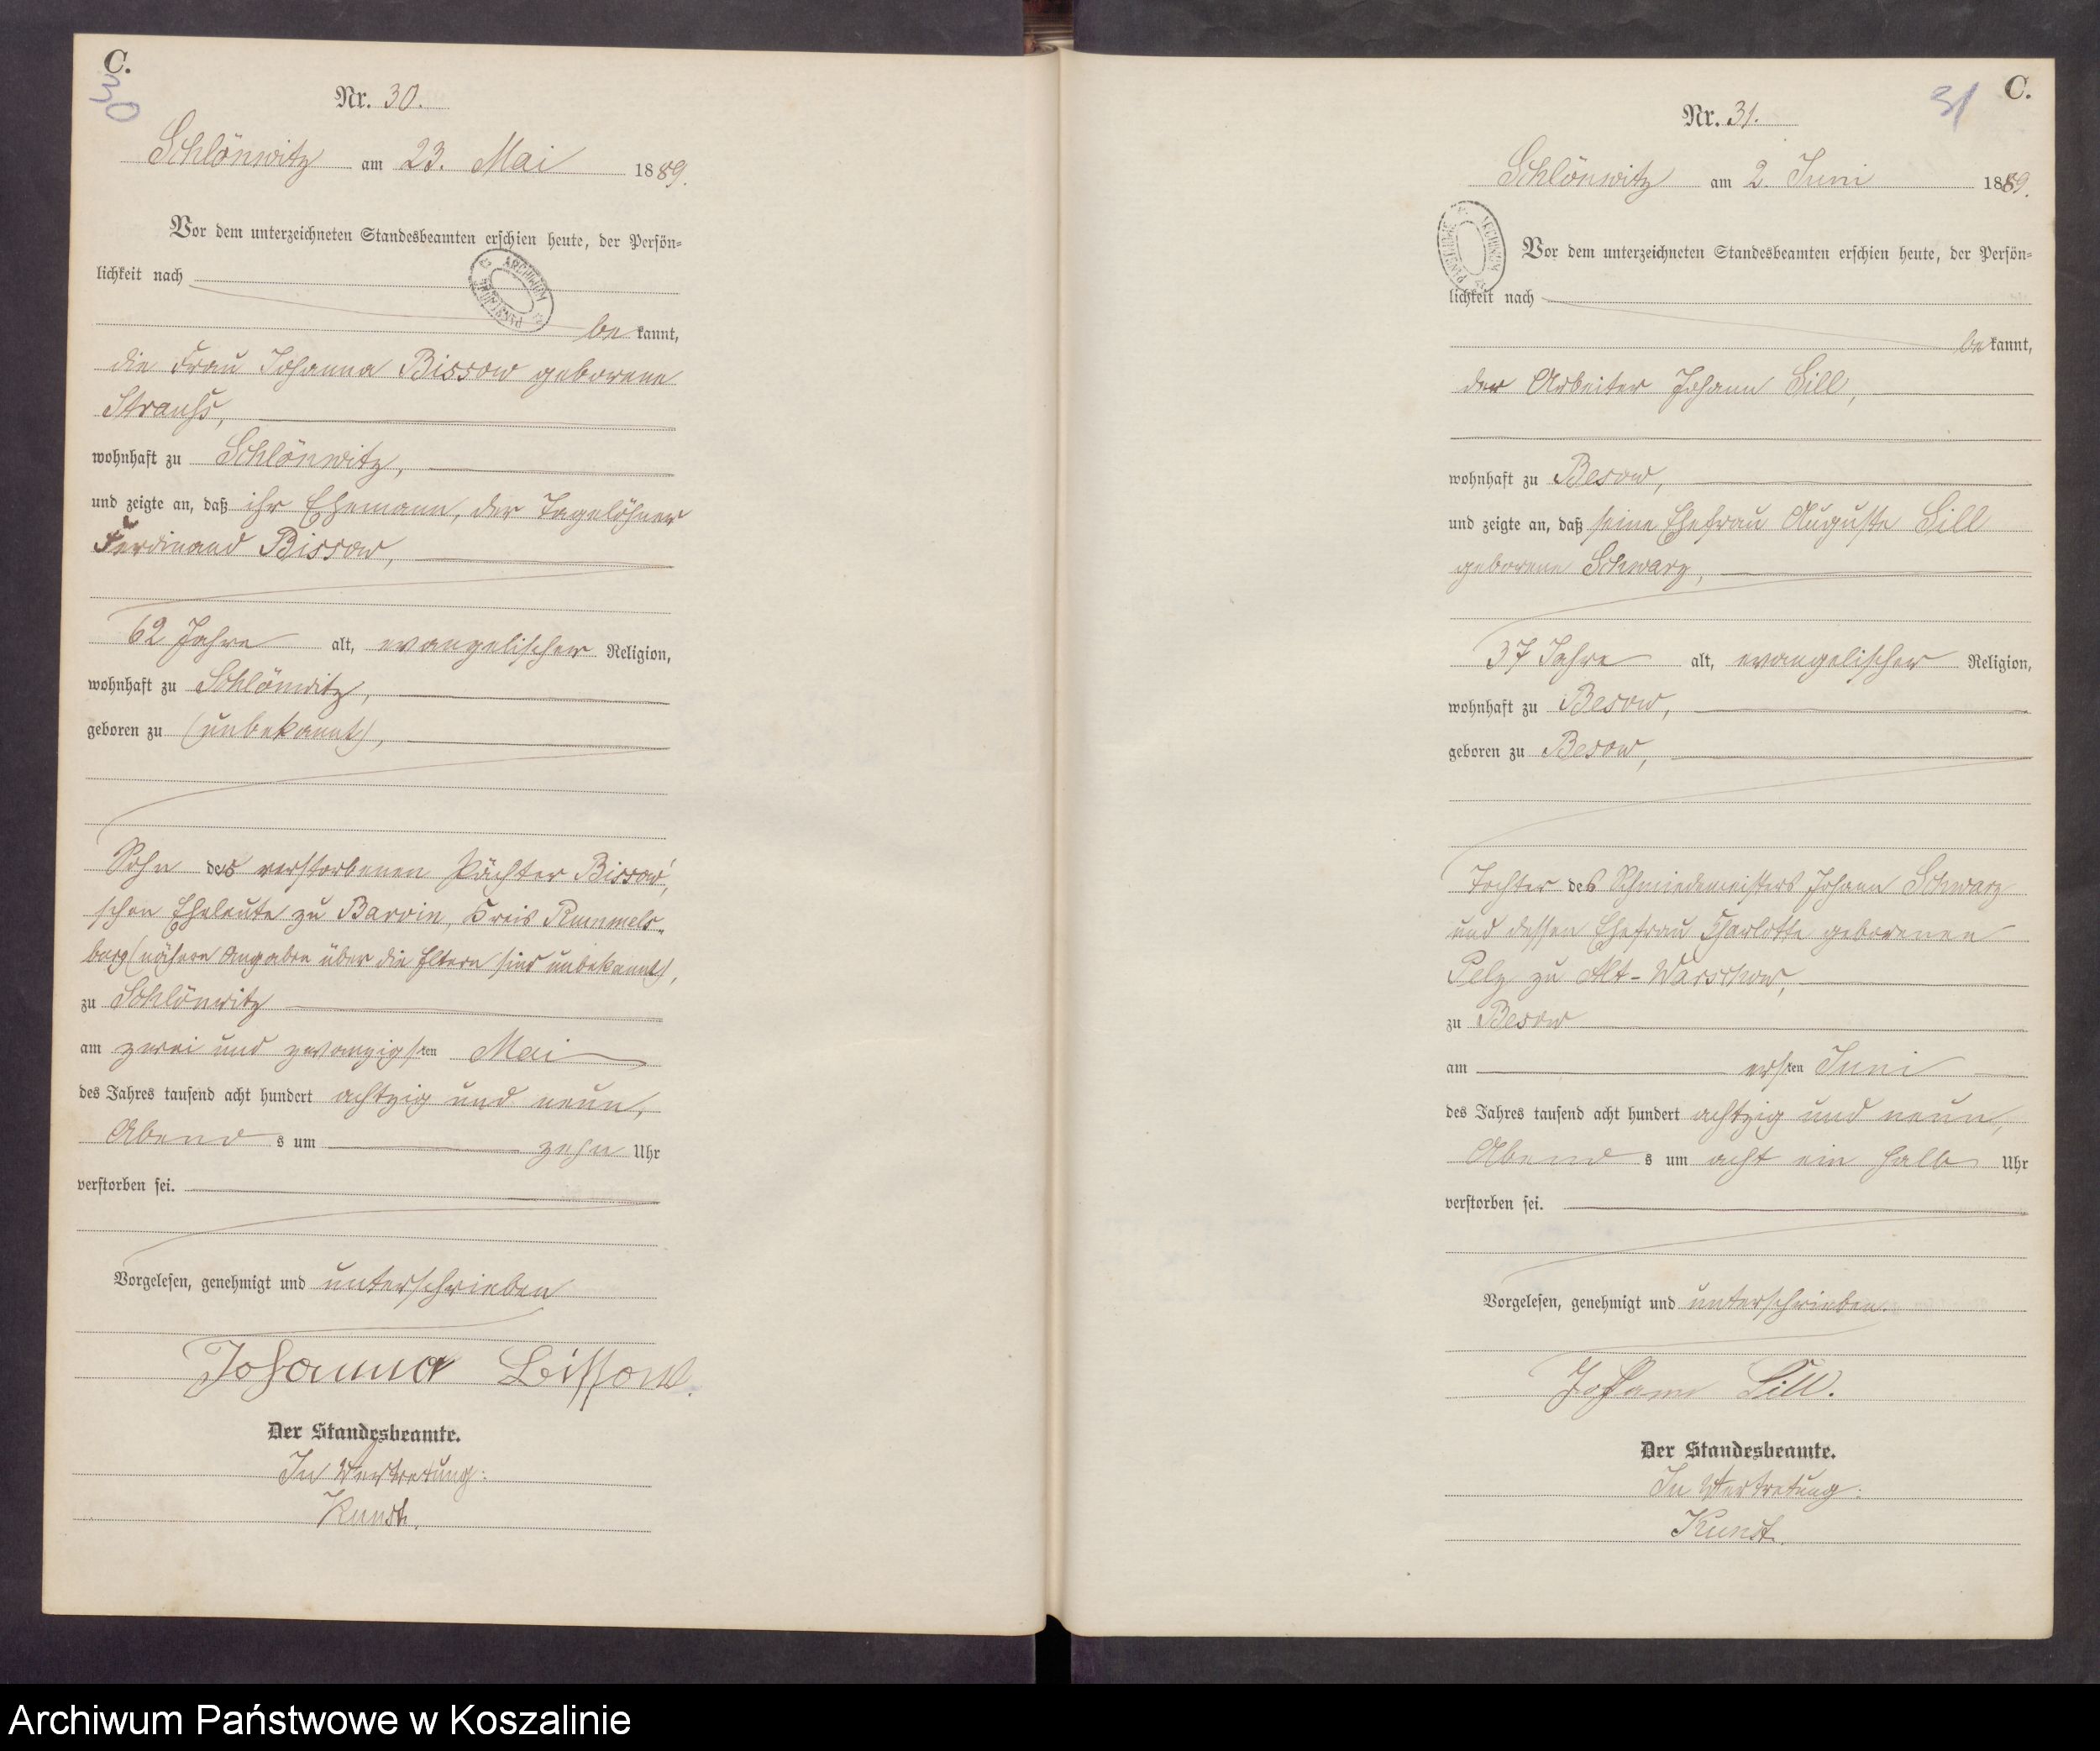 C.
30
Nr. 30.
Schlönwitz am 23. Mai 1889.
Vor dem unterzeichneten Standesbeamten erschien heute, der Persön=
lichkeit nach
be kannt,
die Frau Johanna Bissow geborene
Strauhs,
wohnhaft zu Schlönwitz,
und zeigte an, daß ihr Ehemann, der Tagelöhner
Ferdinand Bissow,
62 Jahre alt, evangelischer Religion,
wohnhaft zu Schlönwitz,
geboren zu (unbekannt),
Sohn des verstorbenen Pächter Bissow'
schen Eheleute zu Barvin, Kreis Rummels-
burg (nähere Angaben über die Eltern sind unbekannt),
zu Schlönwitz
am zwei und zwanzigsten Mai
des Jahres tausend acht hundert achtzig und neun,
Abends um zehn Uhr
verstorben sei.
Vorgelesen, genehmigt und unterschrieben
Johanna Bissow.
Der Standesbeamte.
In Vertretung:
Kunst.
C.
31
Nr. 31.
Schlönwitz am 2. Juni 1889.
ARCHIWUM PAŃSTWOWE
Vor dem unterzeichneten Standesbeamten erschien heute, der Persön=
lichkeit nach
be kannt,
der Arbeiter Johann Sill,
wohnhaft zu Besow,
und zeigte an, daß seine Ehefrau Auguste Sill
geborene Schwarz,
37 Jahre alt, evangelischer Religion,
wohnhaft zu Besow,
geboren zu Besow,
Tochter des Schmiedemeisters Johann Schwarz
und dessen Ehefrau Charlotte geborenen
Pelz zu Alt-Warschow,
zu Besow
am ersten Juni
des Jahres tausend acht hundert achtzig und neun,
Abends um acht ein halb Uhr
verstorben sei.
Vorgelesen, genehmigt und unterschrieben.
Johann Sill.
Der Standesbeamte.
In Vertretung:
Kunst.
Archiwum Państwowe w Koszalinie